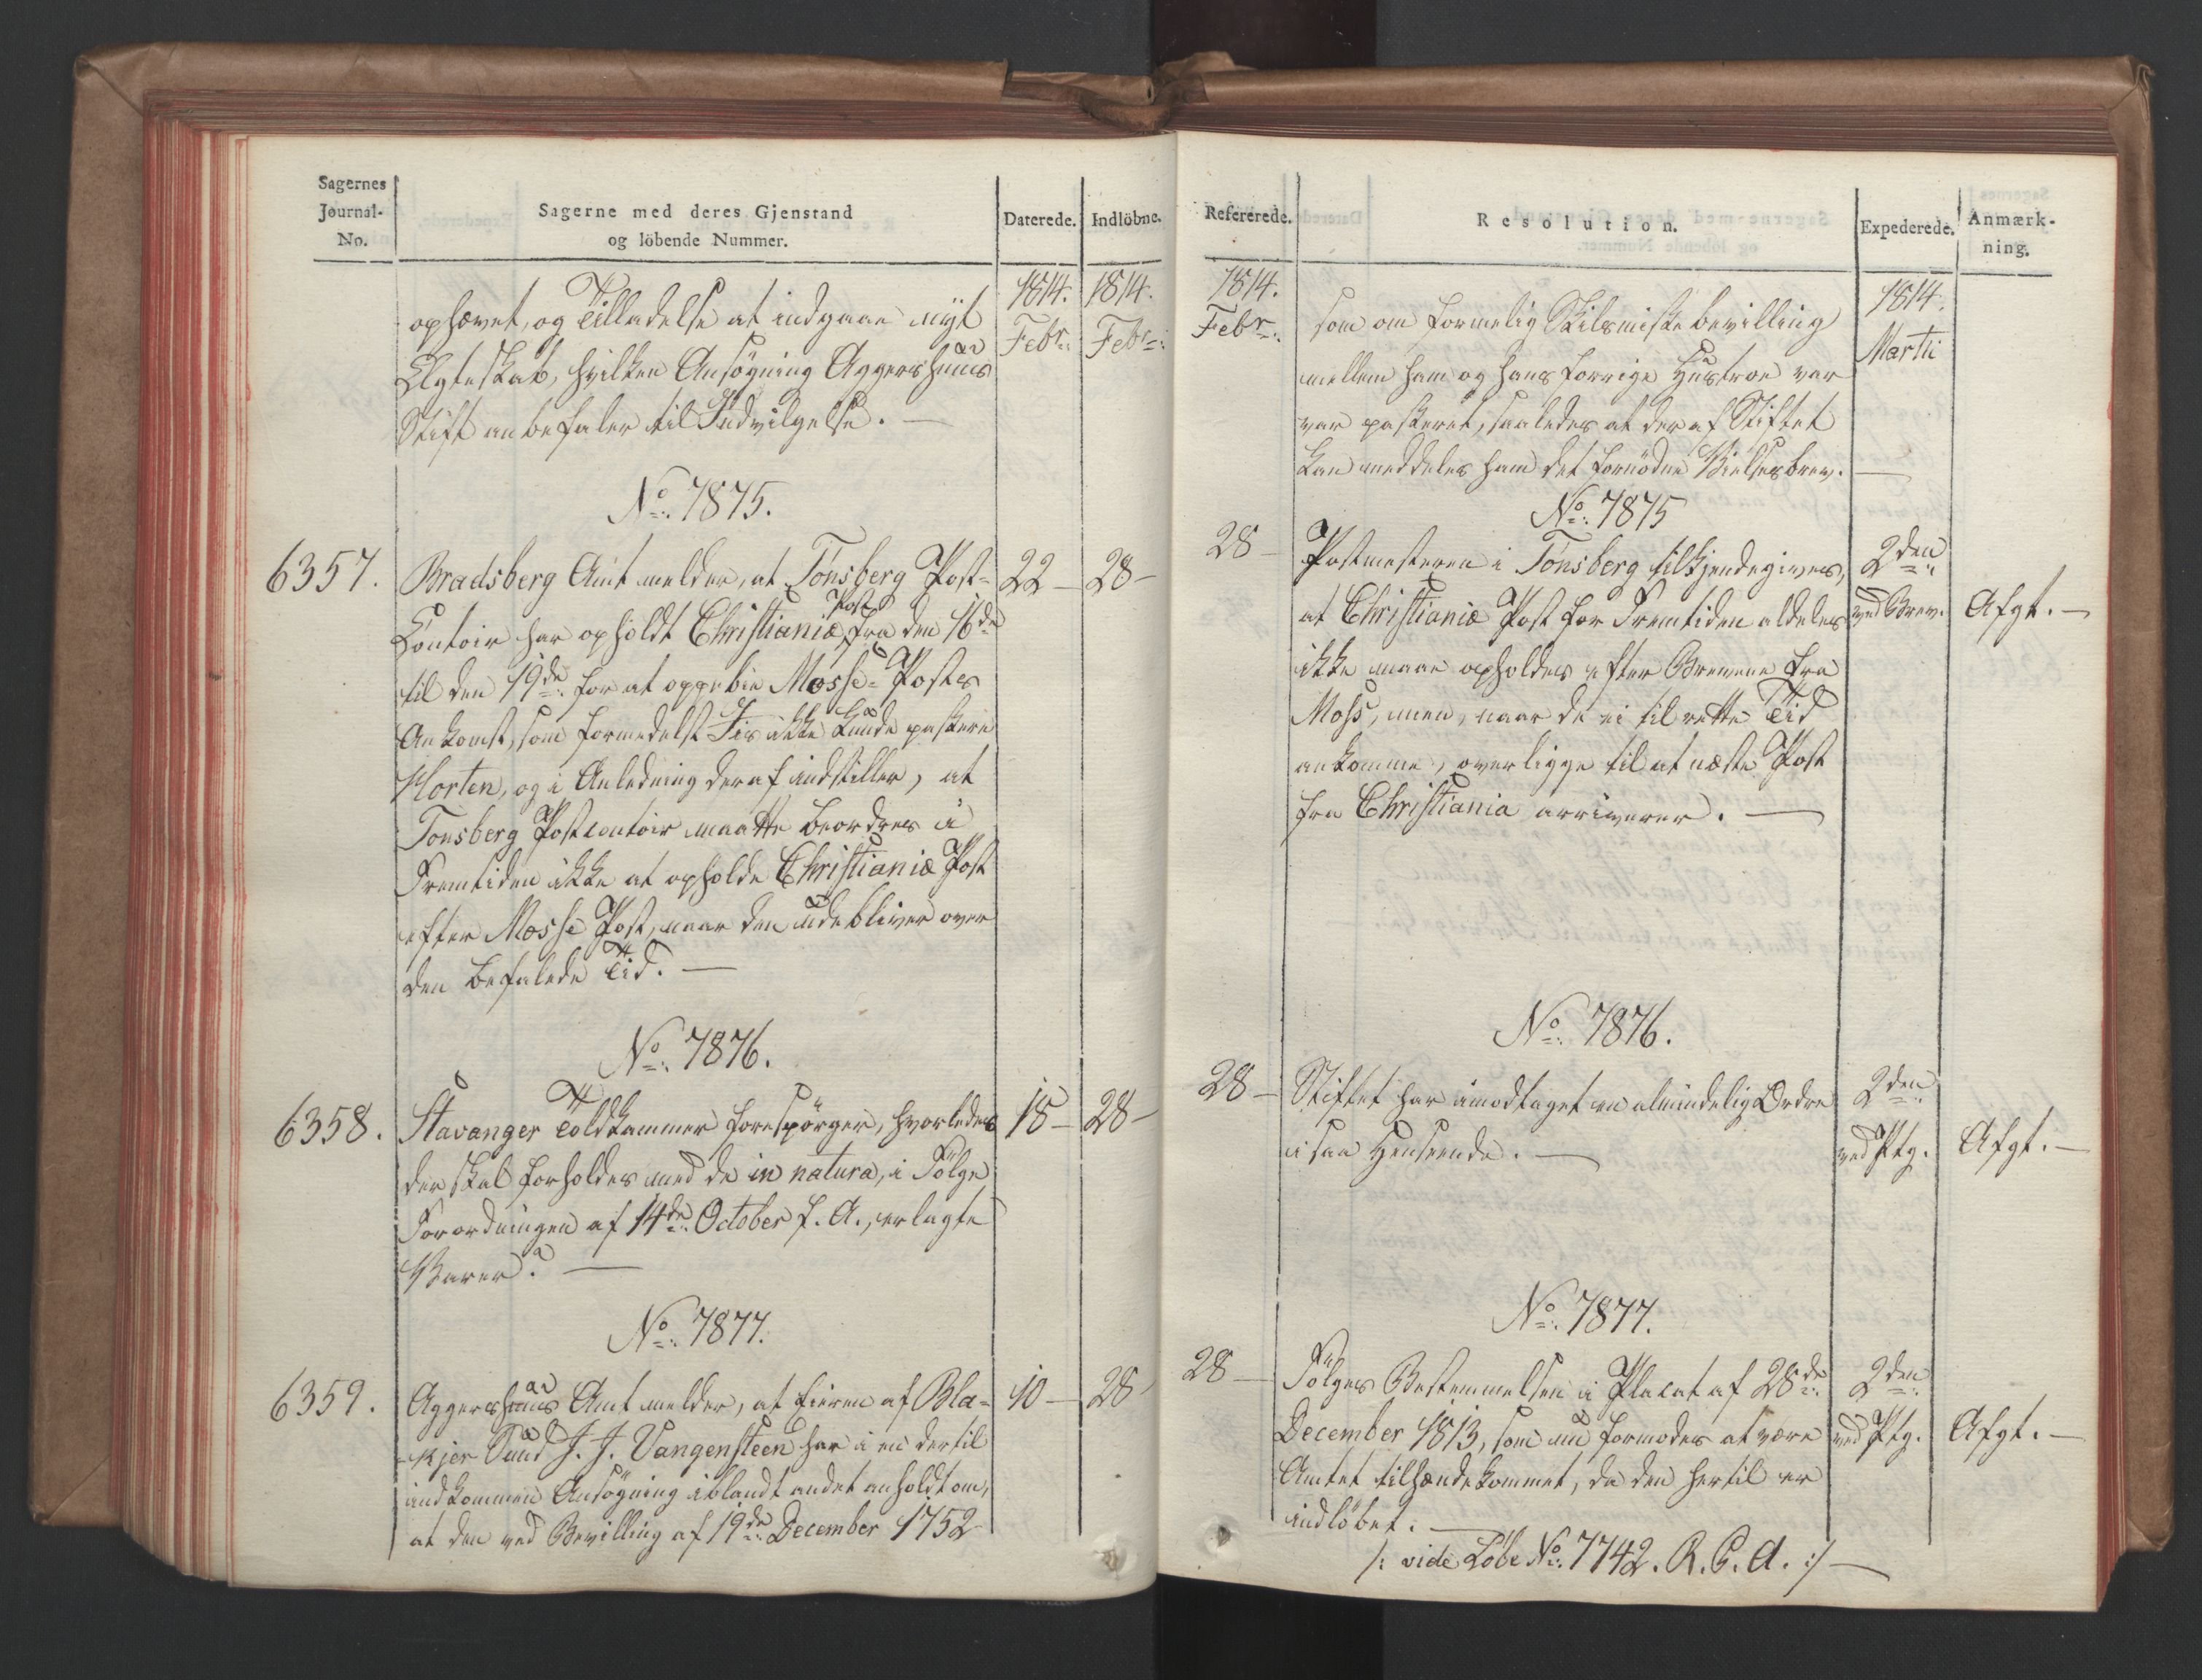 Sagernes
Journal-
No.
Sagerne med deres Gjenstand
og löbende Nummer.
Daterede.
Indlöbne.
1814.
Febr:
1814.
Febr:
ophævet, og Tilladelse at indgaae nyt
Ægteskab, hvilken Ansøgning Aggershuus
Stift anbefaler til Indvilgelse. —
No: 7875.
6357.
Bradsberg Amt melder, at Tönsberg Post-
22 —
28 —
Contoir har opholdt Christianiæ Post fra den 16de
til den 19de: for at oppebie Mosse-Postes
Ankomst, som formedelst Iis ikke kunde passere
Horten, og i Anledning deraf indstiller, at
Tonsberg Postcontoir maatte beordres i
Fremtiden ikke at opholde Christianiæ Post
efter Mosse Post, naar den udebliver over
den befalede Tid. —
No: 7876.
6358.
Stavanger Toldkammer forespörger, hvorledes
18 —
28 —
der skal forholdes med de in natura, i Fölge
Forordningen af 14de: October f. A., erlagte
Varer? —
No: 7877.
6359.
Aggershuus Amt melder, at Eieren af Bla-
10 —
28
kjer Sund J. J. Vangensteen har i en dertil
indkommen Ansögning iblandt andet anholdt om,
at den ved Bevilling af 19de: December 1752
Refererede.
Resolution.
Expederede.
Anmærk-
ning.
1814.
Febr:
1814.
Martii
som om formelig Skilsmisse bevilling
mellem ham og hans forrige Hustroe var
var passeret, saaledes at der af Stiftet
kan meddeles ham det fornödne Vielsesbrev. —
No: 7875
28 —
Postmesteren i Tönsberg tilkjendegives,
2den:
at Christianiæ Post for Fremtiden aldeles
ved Brev.
Afgt. —
ikke maae opholdes efter Brevene fra
Moss, men, naar de ei til rette Tid
ankomme, overligge til at næste Post
fra Christiania arriverer. —
No: 7876.
28 —
Stiftet har imodtaget en almindelig Ordre
2den:
i saa Henseende. —
ved Ptg.
Afgt. —
No: 7877.
28 —
Fölges Bestemmelsen i Placat af 28de:
2den:
December 1813, som nu formodes at være
ved Ptg.
Afgt. —
Amtet tilhændekommet, da den hertil er
indlöbet. —
/: vide Löbe No: 7742. R. C. A. :/ —